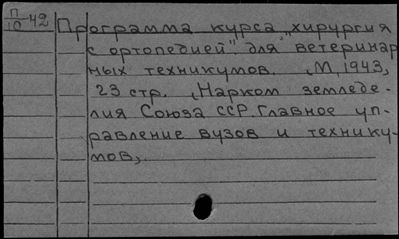 П/10-42 Программа курса "хирургия
с ортопедией" для ветеринар
ных техникумов. М, 1943,
23 стр. Нарком земледе-
лия Союза ССР. Главное уп-
равление вузов и технику-
мов,